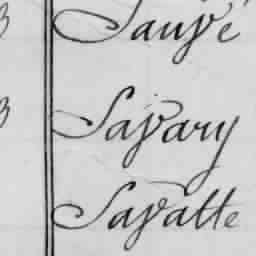 Sauvé
Savary
Savatte